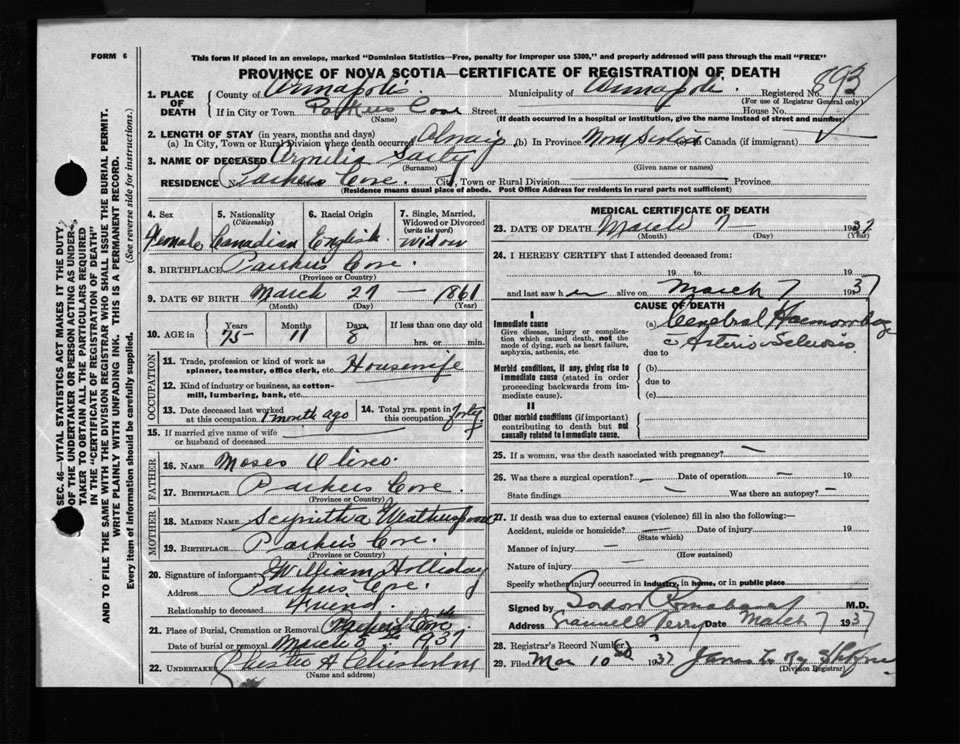 FORM 6
This form if placed in an envelope, marked "Dominion Statistics—Free, penalty for improper use $300," and properly addressed will pass through the mail "FREE"
PROVINCE OF NOVA SCOTIA—CERTIFICATE OF REGISTRATION OF DEATH
893
1. PLACE OF DEATH
County of Annapolis Municipality of Annapolis Registered No.
(For use of Registrar General only)
If in City or Town Parkers Cove Street House No.
(Name) (If death occurred in a hospital or institution, give the name instead of street and number)
2. LENGTH OF STAY (in years, months and days)
(a) In City, Town or Rural Division where death occurred Always (b) In Province Nova Scotia Canada (if immigrant)
3. NAME OF DECEASED Armilia
(Surname) (Given name or names)
RESIDENCE No. Parkers Cove. City, Town or Rural Division Province
(Residence means usual place of abode. Post Office Address for residents in rural parts not sufficient)
SEC. 46—VITAL STATISTICS ACT MAKES IT THE DUTY OF THE UNDERTAKER OR PERSON ACTING AS UNDERTAKER TO OBTAIN ALL THE PARTICULARS REQUIRED IN THE "CERTIFICATE OF REGISTRATION OF DEATH"
AND TO FILE THE SAME WITH THE DIVISION REGISTRAR WHO SHALL ISSUE THE BURIAL PERMIT.
WRITE PLAINLY WITH UNFADING INK. THIS IS A PERMANENT RECORD.
Every item of information should be carefully supplied. (See reverse side for instructions.)
4. Sex
Female
5. Nationality
(Citizenship)
Canadian
6. Racial Origin
English
7. Single, Married, Widowed or Divorced
(write the word)
Widow
8. BIRTHPLACE Parkers Cove.
(Province or Country)
9. DATE OF BIRTH March 27 — 1861
(Month) (Day) (Year)
10. AGE in Years Months Days If less than one day old
75 11 8 hrs. or min.
OCCUPATION
11. Trade, profession or kind of work as spinner, teamster, office clerk, etc. Housewife
12. Kind of industry or business, as cotton-mill, lumbering, bank, etc.
13. Date deceased last worked at this occupation 1 month ago
14. Total yrs. spent in this occupation forty
15. If married give name of wife or husband of deceased
FATHER
16. NAME Moses
17. BIRTHPLACE Parkers Cove.
(Province or Country)
MOTHER
18. MAIDEN NAME
19. BIRTHPLACE Parkers Cove.
(Province or Country)
20. Signature of informant William Holliday
Address Parkers Cove.
Relationship to deceased Friend
21. Place of Burial, Cremation or Removal Parkers Cove
Date of burial or removal March 1937
22. UNDERTAKER
(Name and address)
MEDICAL CERTIFICATE OF DEATH
23. DATE OF DEATH March 7 — 1937
(Month) (Day) (Year)
24. I HEREBY CERTIFY that I attended deceased from:
19 to 19
and last saw her alive on March 7 1937
CAUSE OF DEATH
I
Immediate cause
Give disease, injury or complication which caused death, not the mode of dying, such as heart failure, asphyxia, asthenia, etc.
(a) Cerebral Haemorrhage
c Arterio Sclerosis
due to
Morbid conditions, if any, giving rise to immediate cause (stated in order proceeding backwards from immediate cause).
(b)
due to
(c)
II
Other morbid conditions (if important) contributing to death but not causally related to immediate cause.
25. If a woman, was the death associated with pregnancy? —
26. Was there a surgical operation? — Date of operation — 19
State findings — Was there an autopsy? —
27. If death was due to external causes (violence) fill in also the following:—
Accident, suicide or homicide? — Date of injury 19
(State which)
Manner of injury —
(How sustained)
Nature of injury —
Specify whether injury occurred in industry, in home, or in public place
Signed by M.D.
Address Granville Ferry Date March 7 1937
28. Registrar's Record Number
29. Filed Mar 10 1937
(Division Registrar)